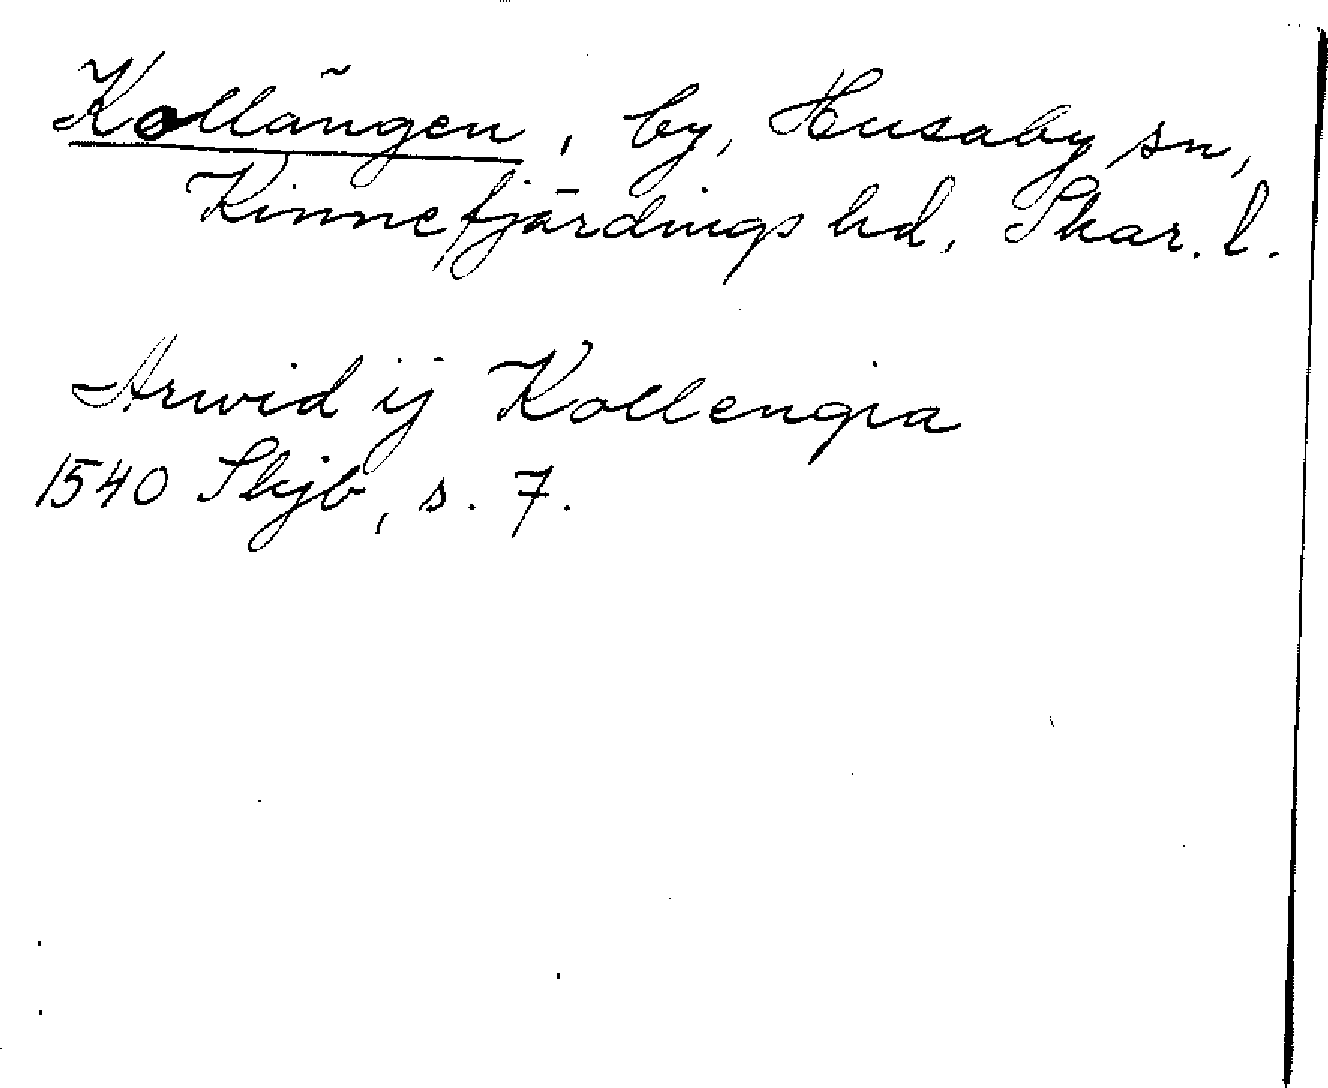 Kollängen, by, Husaby sn,
Kinnefjärdings hd, Skar. l.
Arwid ij Kollengia
1540 Skjb, s. 7.